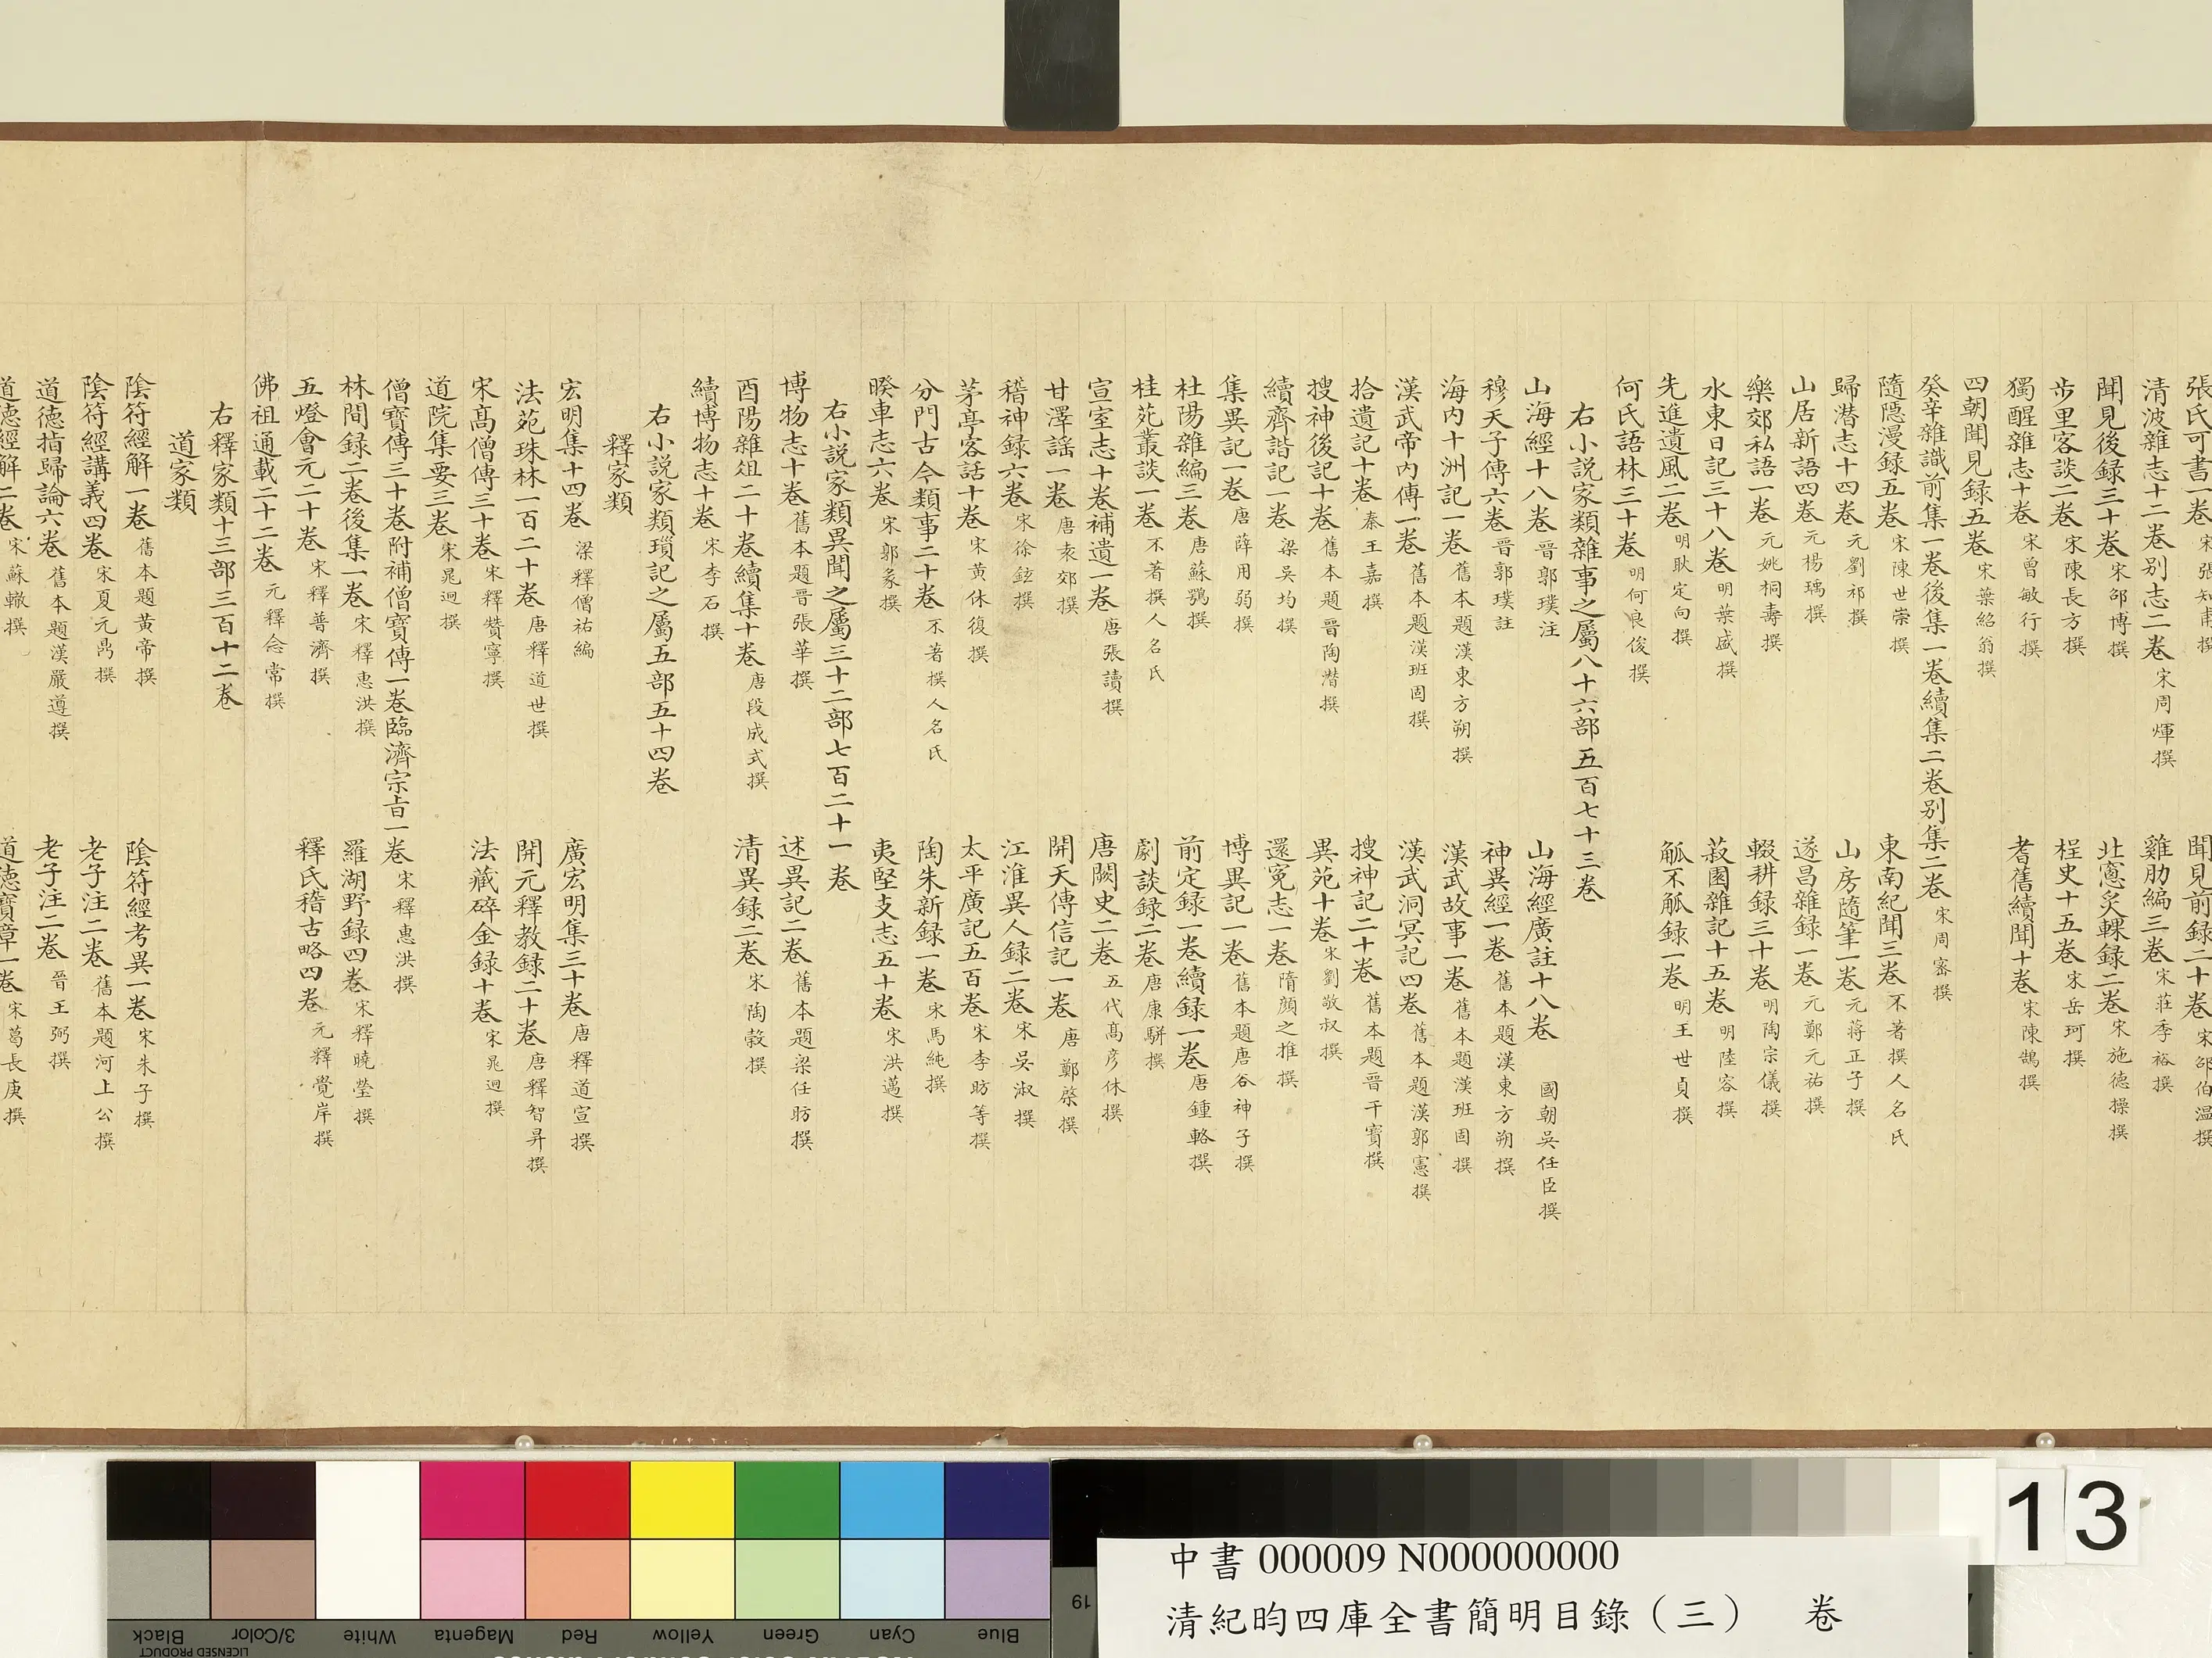 張氏可書一卷 宋張知甫撰 聞見前録二十卷 宋邵伯溫撰
清波雜志十二卷别志二卷 宋周煇撰 雞肋編三卷 宋莊季裕撰
聞見後録三十卷 宋邵博撰 北窻炙輠録二卷 宋施德操撰
步里客談二卷 宋陳長方撰 桯史十五卷 宋岳珂撰
獨醒雜志十卷 宋曾敏行撰 耆舊續聞十卷 宋陳鵠撰
四朝聞見録五卷 宋葉紹翁撰
癸辛雜識前集一卷後集一卷續集二卷别集二卷 宋周密撰
隨隱漫録五卷 宋陳世崇撰 東南紀聞三卷 不著撰人名氏
歸潛志十四卷 元劉祁撰 山房隨筆一卷 元蔣正子撰
山居新語四卷 元楊瑀撰 遂昌雜録一卷 元鄭元祐撰
樂郊私語一卷 元姚桐壽撰 輟耕録三十卷 明陶宗儀撰
水東日記三十八卷 明葉盛撰 菽園雜記十五卷 明陸容撰
先進遺風二卷 明耿定向撰 觚不觚録一卷 明王世貞撰
何氏語林三十卷 明何良俊撰
右小説家類雜事之屬八十六部五百七十三卷
山海經十八卷 晉郭璞注 山海經廣註十八卷 國朝吳任臣撰
穆天子傳六卷 晉郭璞註 神異經一卷 舊本題漢東方朔撰
海内十洲記一卷 舊本題漢東方朔撰 漢武故事一卷 舊本題漢班固撰
漢武帝内傳一卷 舊本題漢班固撰 漢武洞冥記四卷 舊本題漢郭憲撰
拾遺記十卷 秦王嘉撰 搜神記二十卷 舊本題晉干寳撰
搜神後記十卷 舊本題晉陶潛撰 異苑十卷 宋劉敬叔撰
續齊諧記一卷 梁吳均撰 還寃志一卷 隋顔之推撰
集異記一卷 唐薛用弱撰 博異記一卷 舊本題唐谷神子撰
杜陽雜編三卷 唐蘇鶚撰 前定録一卷續録一卷 唐鍾輅撰
桂苑叢談一卷 不著撰人名氏 劇談録二卷 唐康駢撰
宣室志十卷補遺一卷 唐張讀撰 唐闕史二卷 五代髙彦休撰
甘澤謡一卷 唐袁郊撰 開天傳信記一卷 唐鄭棨撰
稽神録六卷 宋徐鉉撰 江淮異人録二卷 宋吳淑撰
茅亭客話十卷 宋黄休復撰 太平廣記五百卷 宋李昉等撰
分門古今類事二十卷 不著撰人名氏 陶朱新録一卷 宋馬純撰
睽車志六卷 宋郭彖撰 夷堅支志五十卷 宋洪邁撰
右小説家類異聞之屬三十二部七百二十一卷
博物志十卷 舊本題晉張華撰 述異記二卷 舊本題梁任昉撰
酉陽雜俎二十卷續集十卷 唐段成式撰 清異録二卷 宋陶穀撰
續博物志十卷 宋李石撰
右小説家類瑣記之屬五部五十四卷
釋家類
宏明集十四卷 梁釋僧祐編 廣宏明集三十卷 唐釋道宣撰
法苑珠林一百二十卷 唐釋道世撰 開元釋教録二十卷 唐釋智昇撰
宋髙僧傳三十卷 宋釋贊寧撰 法藏碎金録十卷 宋晁迥撰
道院集要三卷 宋晁迥撰
僧寳傳三十卷附補僧寳傳一卷臨濟宗㫖一卷 宋釋惠洪撰
林間録二卷後集一卷 宋釋惠洪撰 羅湖野録四卷 宋釋曉瑩撰
五燈會元二十卷 宋釋普濟撰 釋氏稽古略四卷 元釋覺岸撰
佛祖通載二十二卷 元釋念常撰
右釋家類十三部三百十二卷
道家類
陰符經解一卷 舊本題黄帝撰 陰符經考異一卷 宋朱子撰
陰符經講義四卷 宋夏元鼎撰 老子注二卷 舊本題河上公撰
道德指歸論六卷 舊本題漢嚴遵撰 老子注二卷 晉王弼撰
道德經解二卷 宋蘇轍撰 道德寳章一卷 宋葛長庚撰
13
中書 000009 N000000000
清紀昀四庫全書簡明目錄（三） 卷
19
Black 3/Color White Magenta Red Yellow Green Cyan Blue
LICENSED PRODUCT